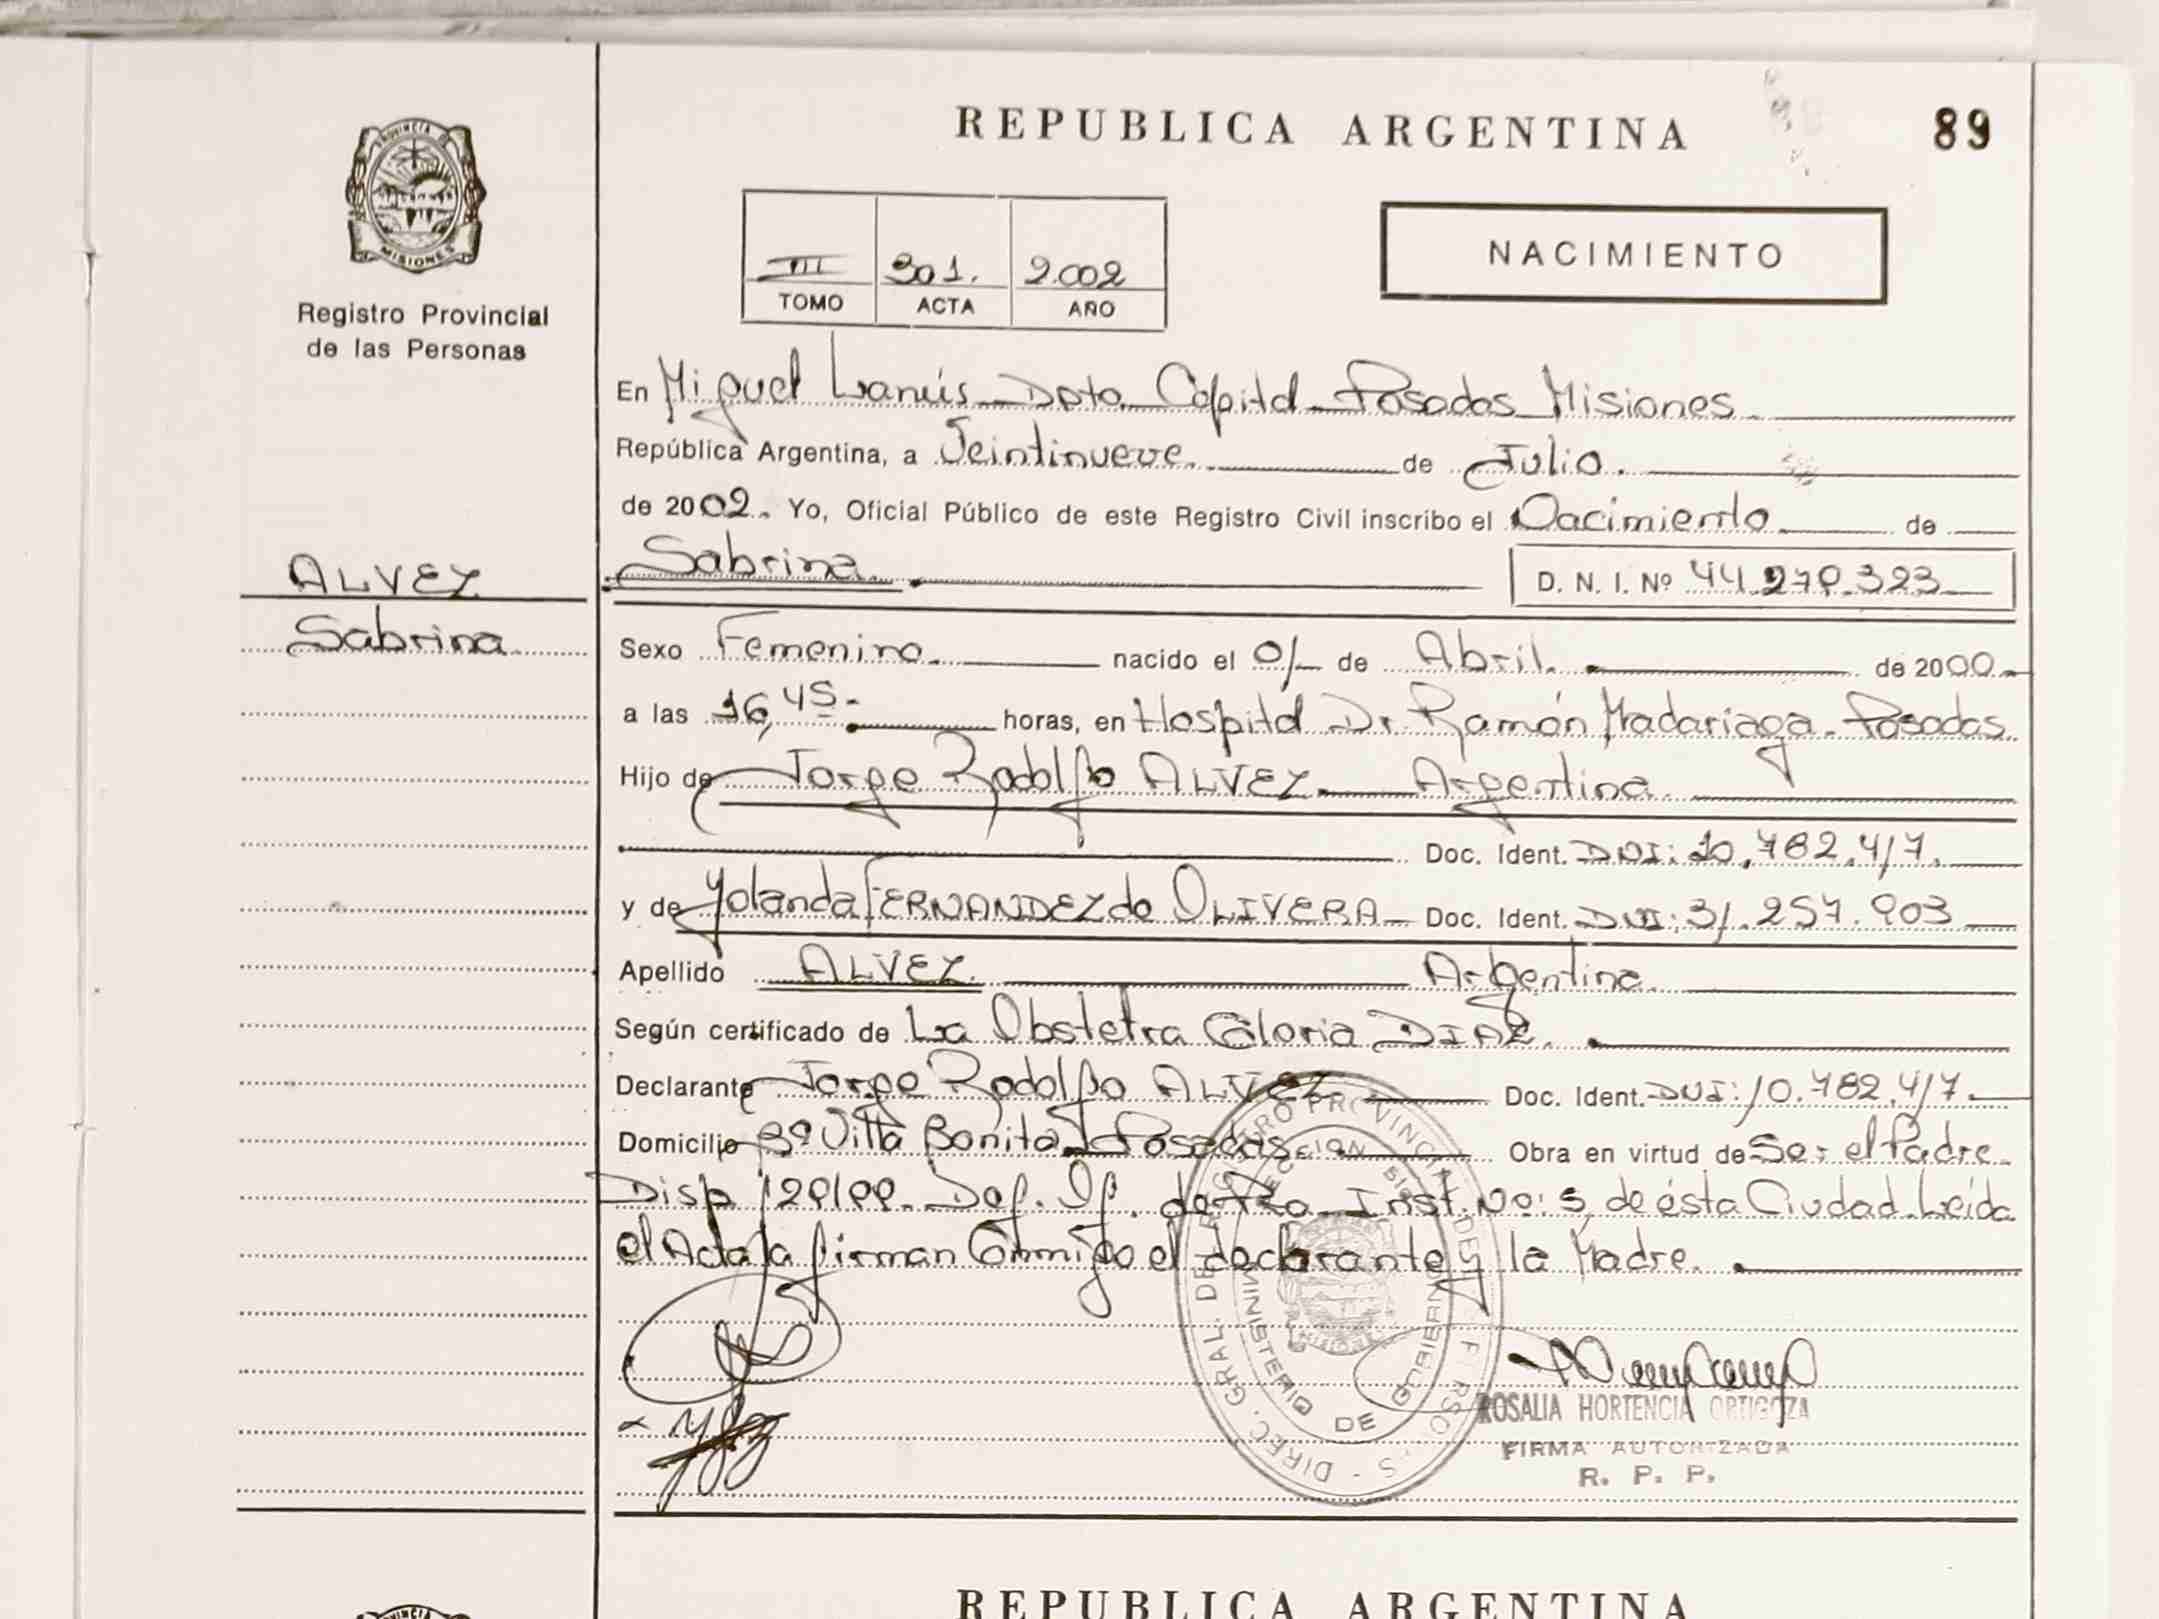 REPUBLICA ARGENTINA
89
PROVINCIA DE
MISIONES
Registro Provincial
de las Personas
III 301. 2.002
TOMO ACTA AÑO
NACIMIENTO
En Miguel Lanús Dpto Capital Posadas Misiones
República Argentina, a Veintinueve de Julio.
de 2002. Yo, Oficial Público de este Registro Civil inscribo el Nacimiento de
ALVEZ
Sabrina
Sabrina D. N. I. Nº
Sexo Femenino nacido el 01 de Abril. de 2000
a las 16,45 horas, en Hospital Dr. Ramón Madariaga. Posadas
Hijo de Jorge Rodolfo ALVEZ Argentina
Doc. Ident. DNI: 10.782.417.
y de Yolanda FERNANDEZ de OLIVERA Doc. Ident. DNI: 31.257.903
Apellido ALVEZ Argentina
Según certificado de La Obstetra Gloria DIAZ.
Declarante Jorge Rodolfo ALVEZ Doc. Ident. DNI: 10.782.417
Domicilio Bº Villa Bonita Posadas Obra en virtud de Ser el Padre
Disp. Def. Of. de 1ra Inst. No: 5 de ésta Ciudad. Leída
el Acta la firman Conmigo el declarante y la Madre.
DIREC. GRAL. DEL REGISTRO PROVINCIAL DE LAS PERSONAS
MINISTERIO DE GOBIERNO
ROSALIA HORTENCIA ORTIGOZA
FIRMA AUTORIZADA
R. P. P.
REPUBLICA ARGENTINA